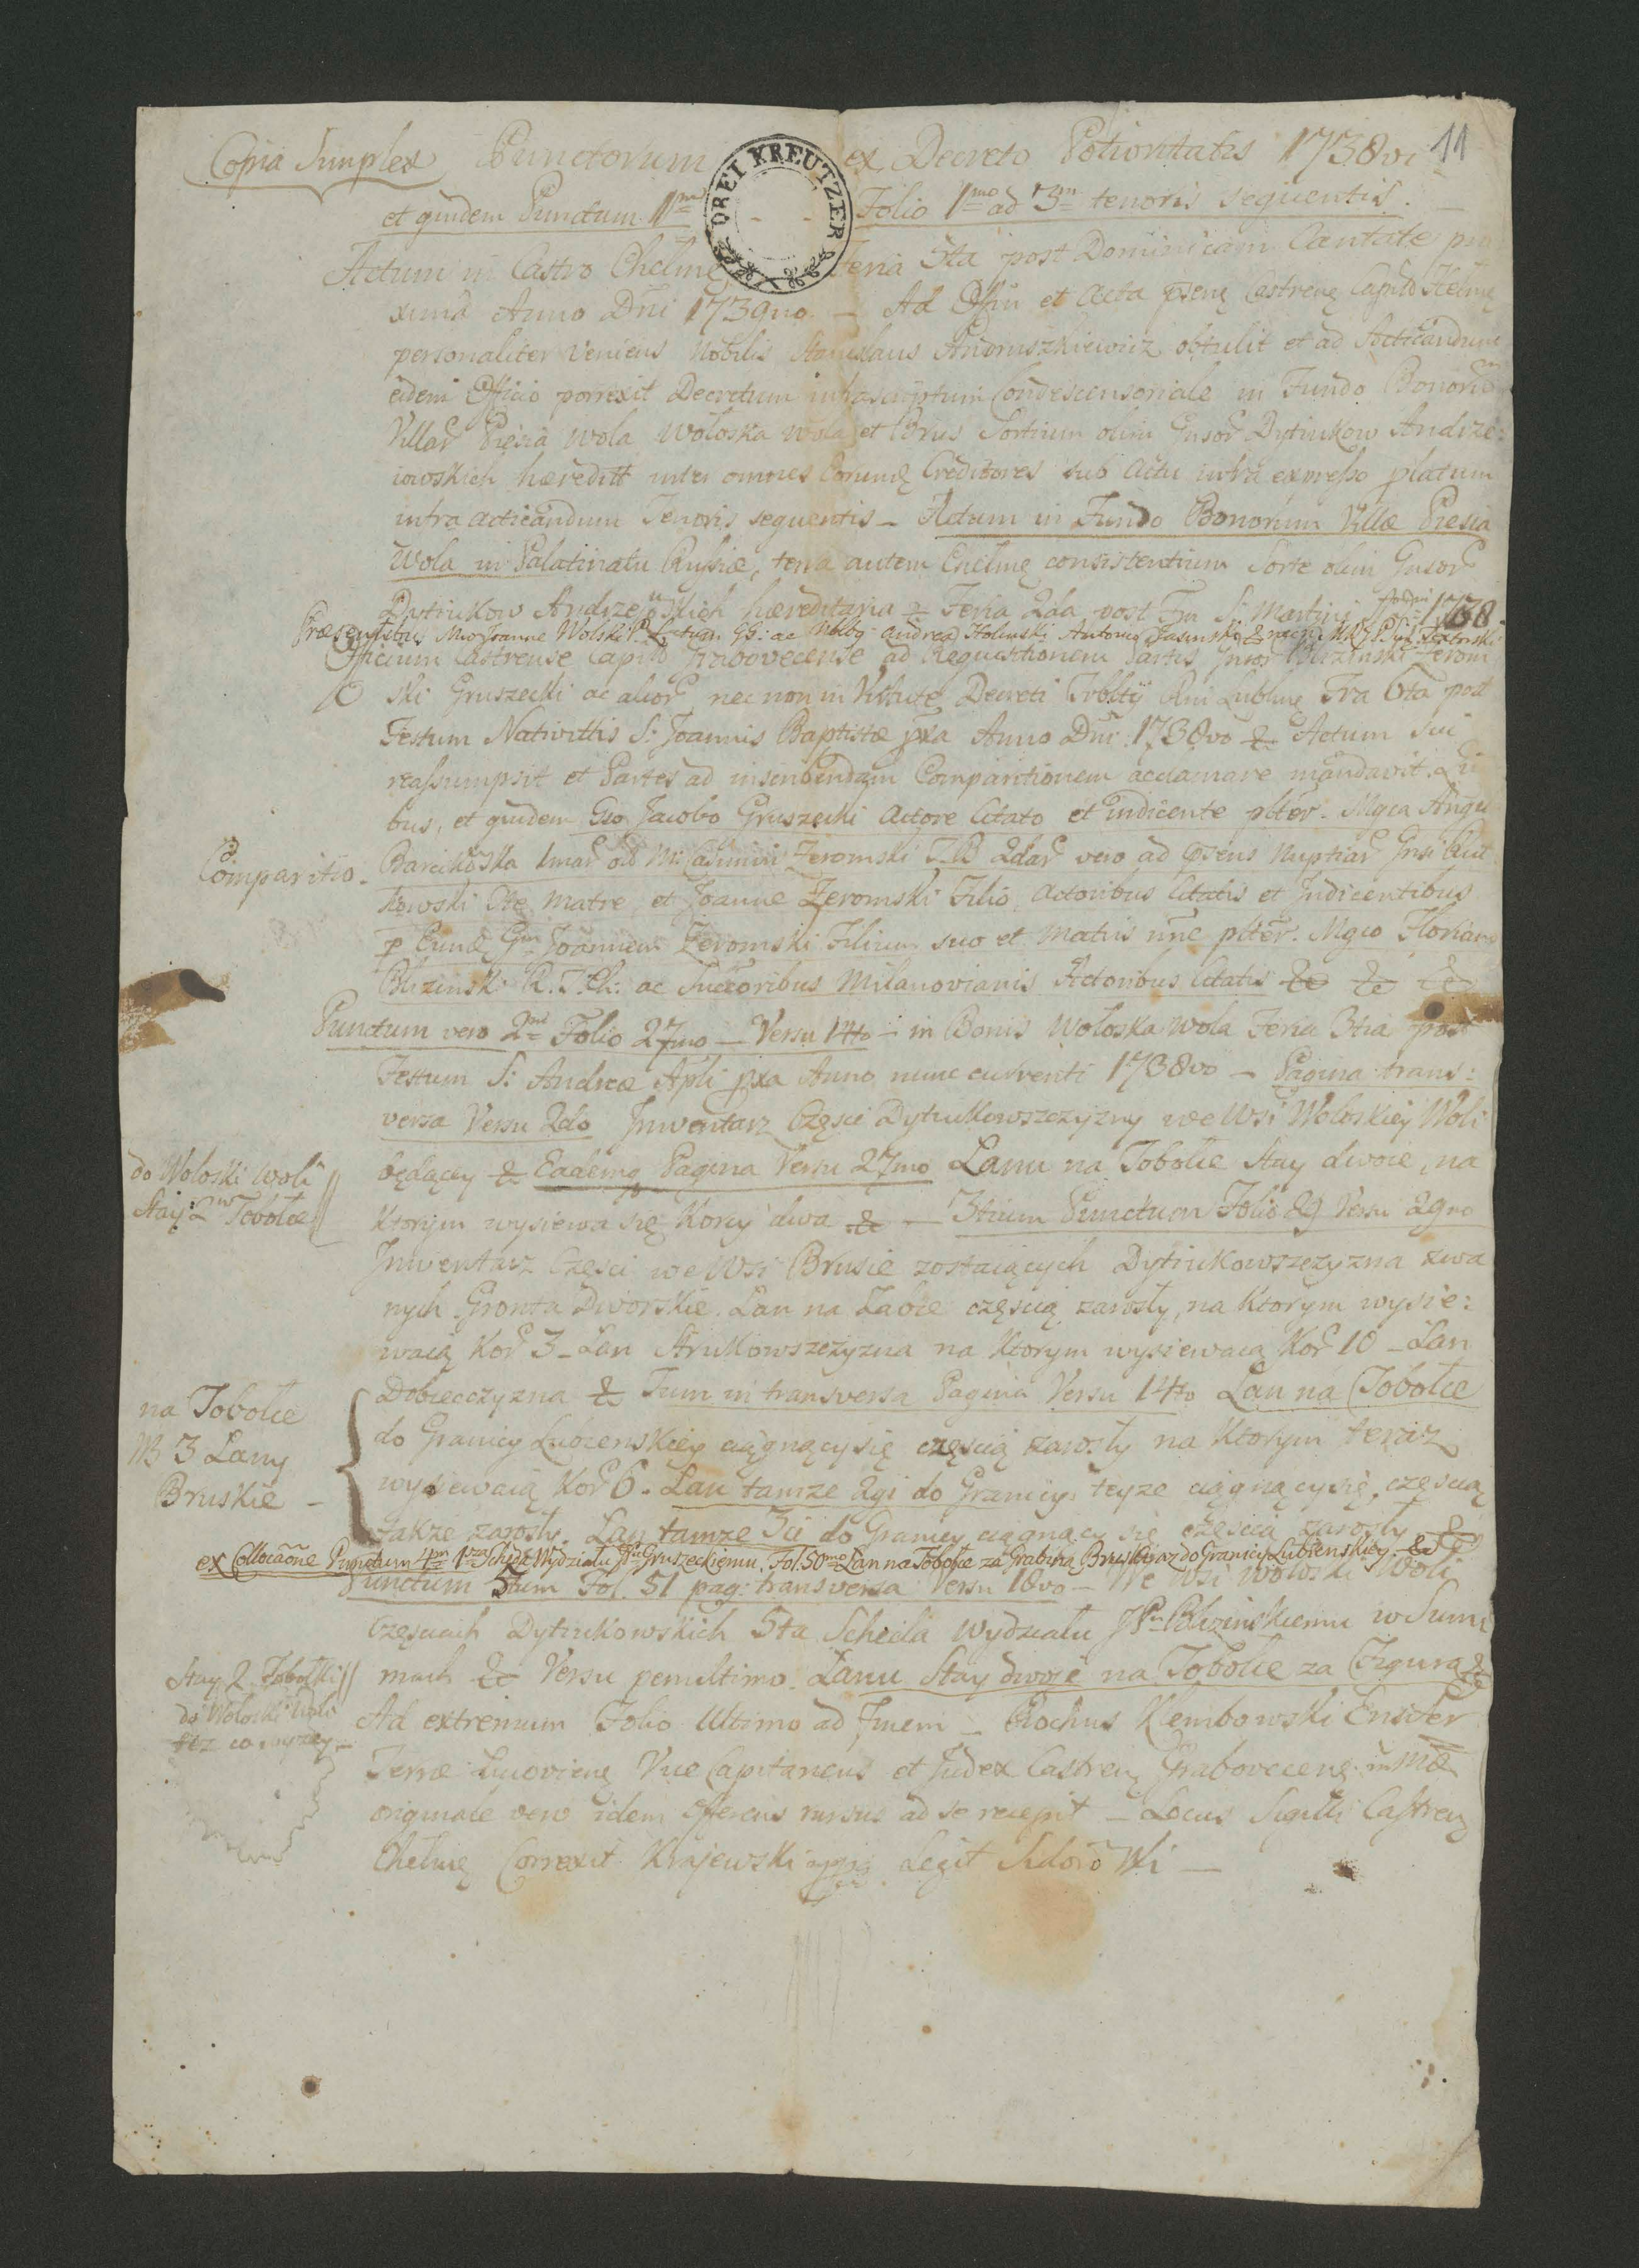 11
Copia Simplex Punctorum ex Decreto Potioritatis 1738vi
et quidem Punctum 1mu Folio 1mo ad 3m tenoris sequentis.
DREI KREUTZER
Actum in Castro Chelmę Feria 5ta post Dominicam Cantate pro
xima Anno Dni 1739no. — Ad Offiu et Acta psenę Castrenę Capitō Chelmę
personaliter veniens Nobilis Stanislaus Andruszkiewicz obtulit et ad Acticandum
eidem Officio porrexit Decretum infrascriptum Condescensoriale in Fundo Bonorum
Villar Presia Wola Woloska Wola et Brus Sortium olim Gnsor Dytiukow Andrze:
iowskich hæreditt inter omnes Eorund Creditores sub Actu infra expresso platum
intra acticandum Tenoris sequentis — Actum in Fundo Bonorum Villæ Presia
Wola in Palatinatu Russiæ, terra autem Chelmę consistentium Sorte olim Gnsor
Dytiukow Andrzeiowskich hæreditaria — Feria 2da post Fm S: Martini 1738
Præsentibus Andrea Holinski Antonio Jasinski
Officium Castrense Capitō Grabovecense ad Requisitionem Partis Gnsor Blizinski Żerom
ski Gruszecki ac alior nec non in Vim Decreti Trbltij Rni Lublinę Fra 6ta post
Festum Nativittis S: Joannis Baptistæ pxa Anno Dni: 1738vo & Actum sui
reassumpsit et Partes ad inscribendam Comparitionem acclamare mandavit. Qui
bus, et quidem Gso Jacobo Gruszecki Actore Citato et indicente plter. Mgca Angel
Comparitio.
Barcikoska 1mar od M: Casimiri Żeromski T.B 2dar vero ad psens Nuptiar Gnsi Rut
kowski Cte Matre, et Joanne Żeromski Filio, Actoribus Citatis et Indicentibus
p Eund Gm Joannem Żeromski Filium suo et Matris nne plter. Mgco Florian
Blizinski R.T.Ch: ac Succoribus Milanovianis Actoribus Citatis &c &c &c
Punctum vero 2m Folio 27mo — Versu 14to — in Bonis Woloska Wola Feria 3tia post
Festum S: Andreæ Apli pxa Anno nunc currenti 1738vo — Pagina trans:
versa Versu 2do Inwentarz Częsci Dytiukowszczyzny we Wsi Woloskiey Woli
będący & Eademq Pagina Versu 27mo Lanu na Tobolce Stay dwoie, na
do Woloski Woli
Stay: 2 w Tobolce
Ktorym wysiewa się Korcy dwa & — 3tium Punctum Folio 29 Versu 29no
Inwentarz Częsci we Wsi Brusie zostaiących Dytiukowszczyzna zwa
nych Gronta Dworskie. Lan na Zaoce częscią zarosły, na Ktorym wysie:
waią Kor 3 — Lan Strukowszczyzna na Ktorym wysiewaią Kor 10 — Lan
Dobieczyzna & Tum in transversa Pagina Versu 14to Lan na Tobołce
na Tobolce
NB 3 Lany
Bruskie —
do Granicy Lubienskiey ciągnący się częscią zarosły na Ktorym teraz
wysiewaią Kor 6. Lan tamze 2gi do Granicy teyze ciągnący się, częscią
takze zarosły. Lan tamze 3ci do Granicy ciągnący się częscią zarosły &
ex Collocaone Punctum 4m 1sza Scheda Wydziału JPu Gruszeckiemu, Fol. 50mo Lan na Tobołce za Grabiną Bruską az do Granicy Lubienskiey. &
Punctum 5tum Fol. 51 pag: transversa Versu 18vo — We Wsi Woloski Woli
Częsciach Dytiukowskich 5ta Scheda Wydziału JPu Blizinskiemu w Sum
mach & Versu penultimo. Lanu Stay dwoie na Tobolce za Figurą &
Stay 2 Tobołki
do Woloski Woli
tez co wyzey —
Ad extremum Folio Ultimo ad Finem — Rochus Klembowski Ensifer
Terræ Lucoviens Vice Capitaneus et Judex Castrenę Grabovecenę mmæ
originale vero idem offerens rursus ad se recepit — Locus Sigilli Castren
Chelmę Correxit Krajewski mpp Legit Sidorowski —